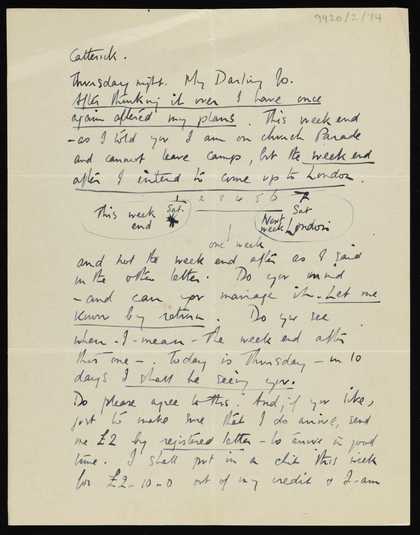 9920/2/14
Catterick.
Thursday night. My Darling Jo.
After thinking it over I have once
again altered my plans. This week end
- as I told you I am on church Parade
and cannot leave camp, but the week end
after I intend to come up to London.
1 2 3 4 5 6 7
This week Sat. Sat
end Next week London
one week
and not the week end after as I said
in the other letter. Do you mind
- and can you manage it - Let me
know by return. Do you see
when - I - mean - the week end after
this one -. Today is Thursday - in 10
days I shall be seeing you.
Do please agree to this. And, if you like,
just to make sure that I do arrive, send
me £2 by registered letter - to arrive in good
time. I shall put in a chit this week
for £2-10-0 out of my credit & I am